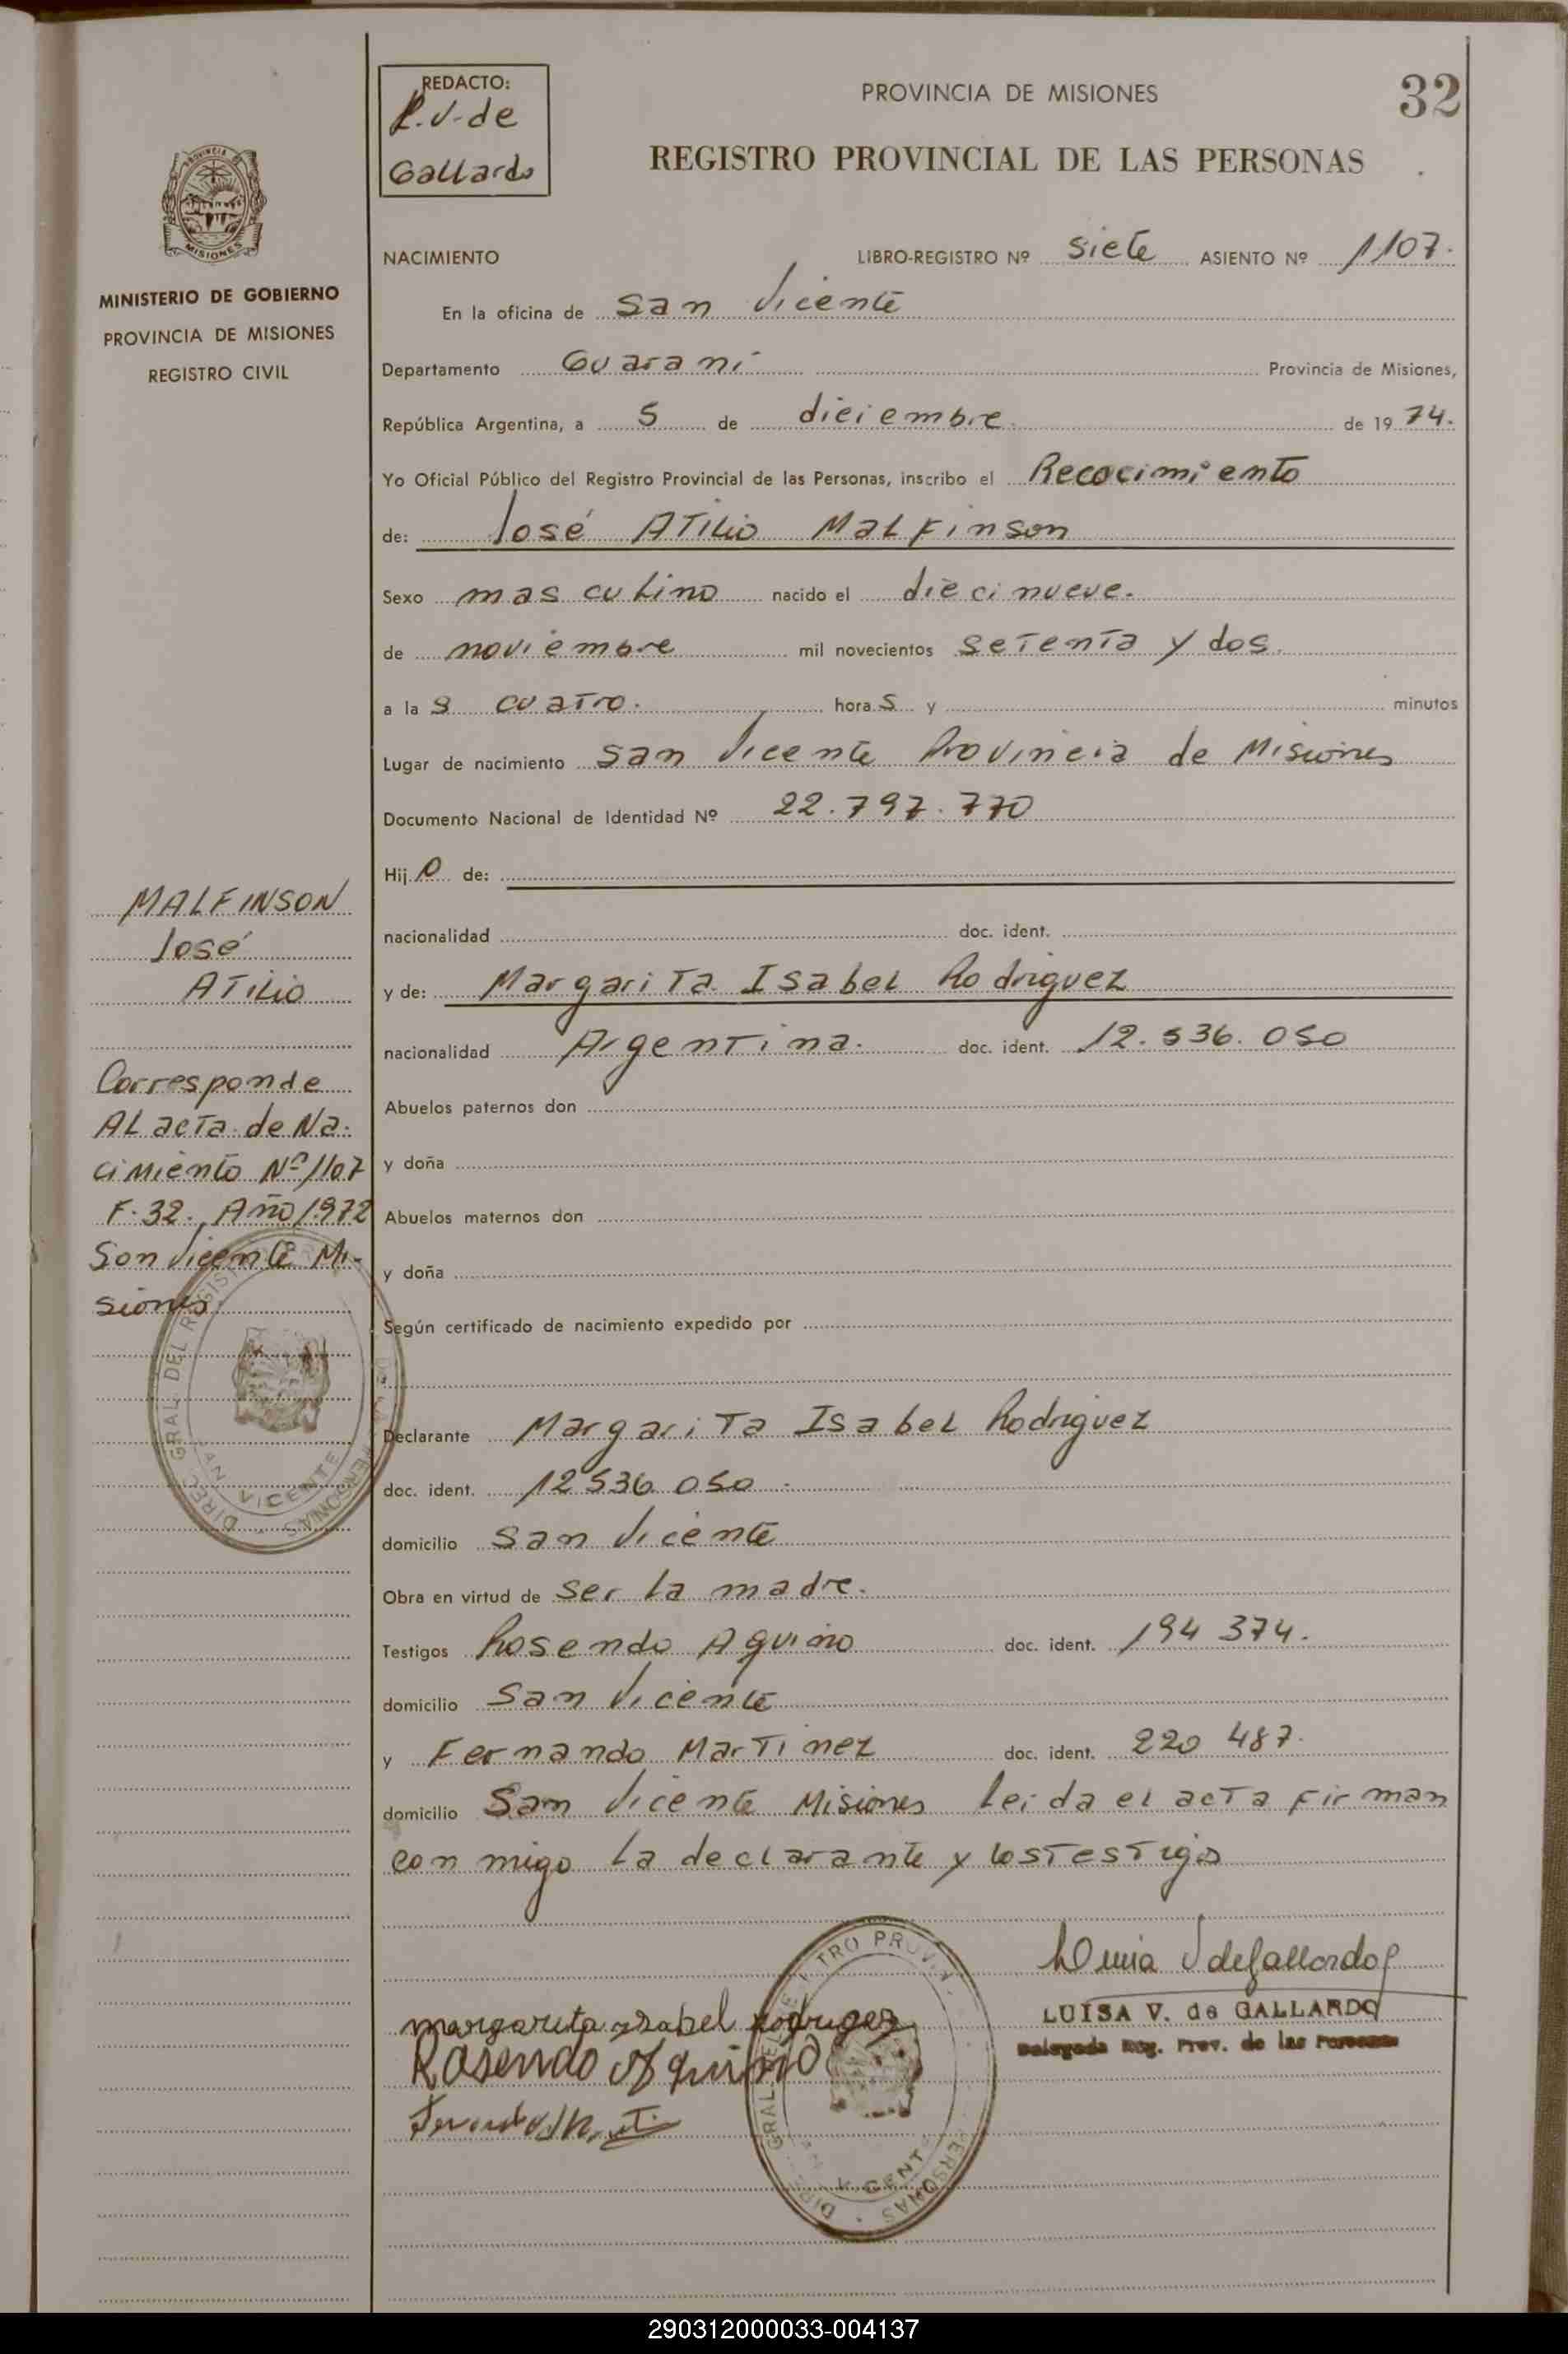 REDACTO:
L.V. de
Gallardo
PROVINCIA DE MISIONES
32
REGISTRO PROVINCIAL DE LAS PERSONAS
PROVINCIA DE
MISIONES
MINISTERIO DE GOBIERNO
PROVINCIA DE MISIONES
REGISTRO CIVIL
NACIMIENTO LIBRO-REGISTRO Nº siete ASIENTO Nº 1107.
En la oficina de San Vicente
Departamento Guaraní Provincia de Misiones,
República Argentina, a 5 de diciembre. de 19 74.
Yo Oficial Público del Registro Provincial de las Personas, inscribo el Recocimiento
de: José Atilio Malfinson
Sexo masculino nacido el diecinueve.
de noviembre mil novecientos setenta y dos.
a la s cuatro. hora s y minutos
Lugar de nacimiento San Vicente Provincia de Misiones
Documento Nacional de Identidad Nº 22.797.770
Hij o de:
nacionalidad doc. ident.
y de: Margarita Isabel Rodriguez
nacionalidad Argentina. doc. ident. 12.536.050
Abuelos paternos don
y doña
Abuelos maternos don
y doña
Según certificado de nacimiento expedido por
Declarante Margarita Isabel Rodriguez
doc. ident. 12536050.
domicilio San Vicente
Obra en virtud de ser la madre.
Testigos Rosendo Aquino doc. ident. 194374.
domicilio San Vicente
y Fernando Martinez doc. ident. 220487.
domicilio San Vicente Misiones leida el acta firman
con migo la declarante y los testigos
MALFINSON
José
Atilio
Corresponde
Al acta de Na-
cimiento Nº 1107
F. 32. Año 1972
San Vicente Mi-
siones
DIREC. GRAL. DEL REGIST PERSONAS
SAN VICENTE
Luisa V de Gallardo
LUISA V. de GALLARDO
Delegada Reg. Prov. de las Personas
margarita ysabel Rodriguez
Rosendo Aquino
290312000033-004137